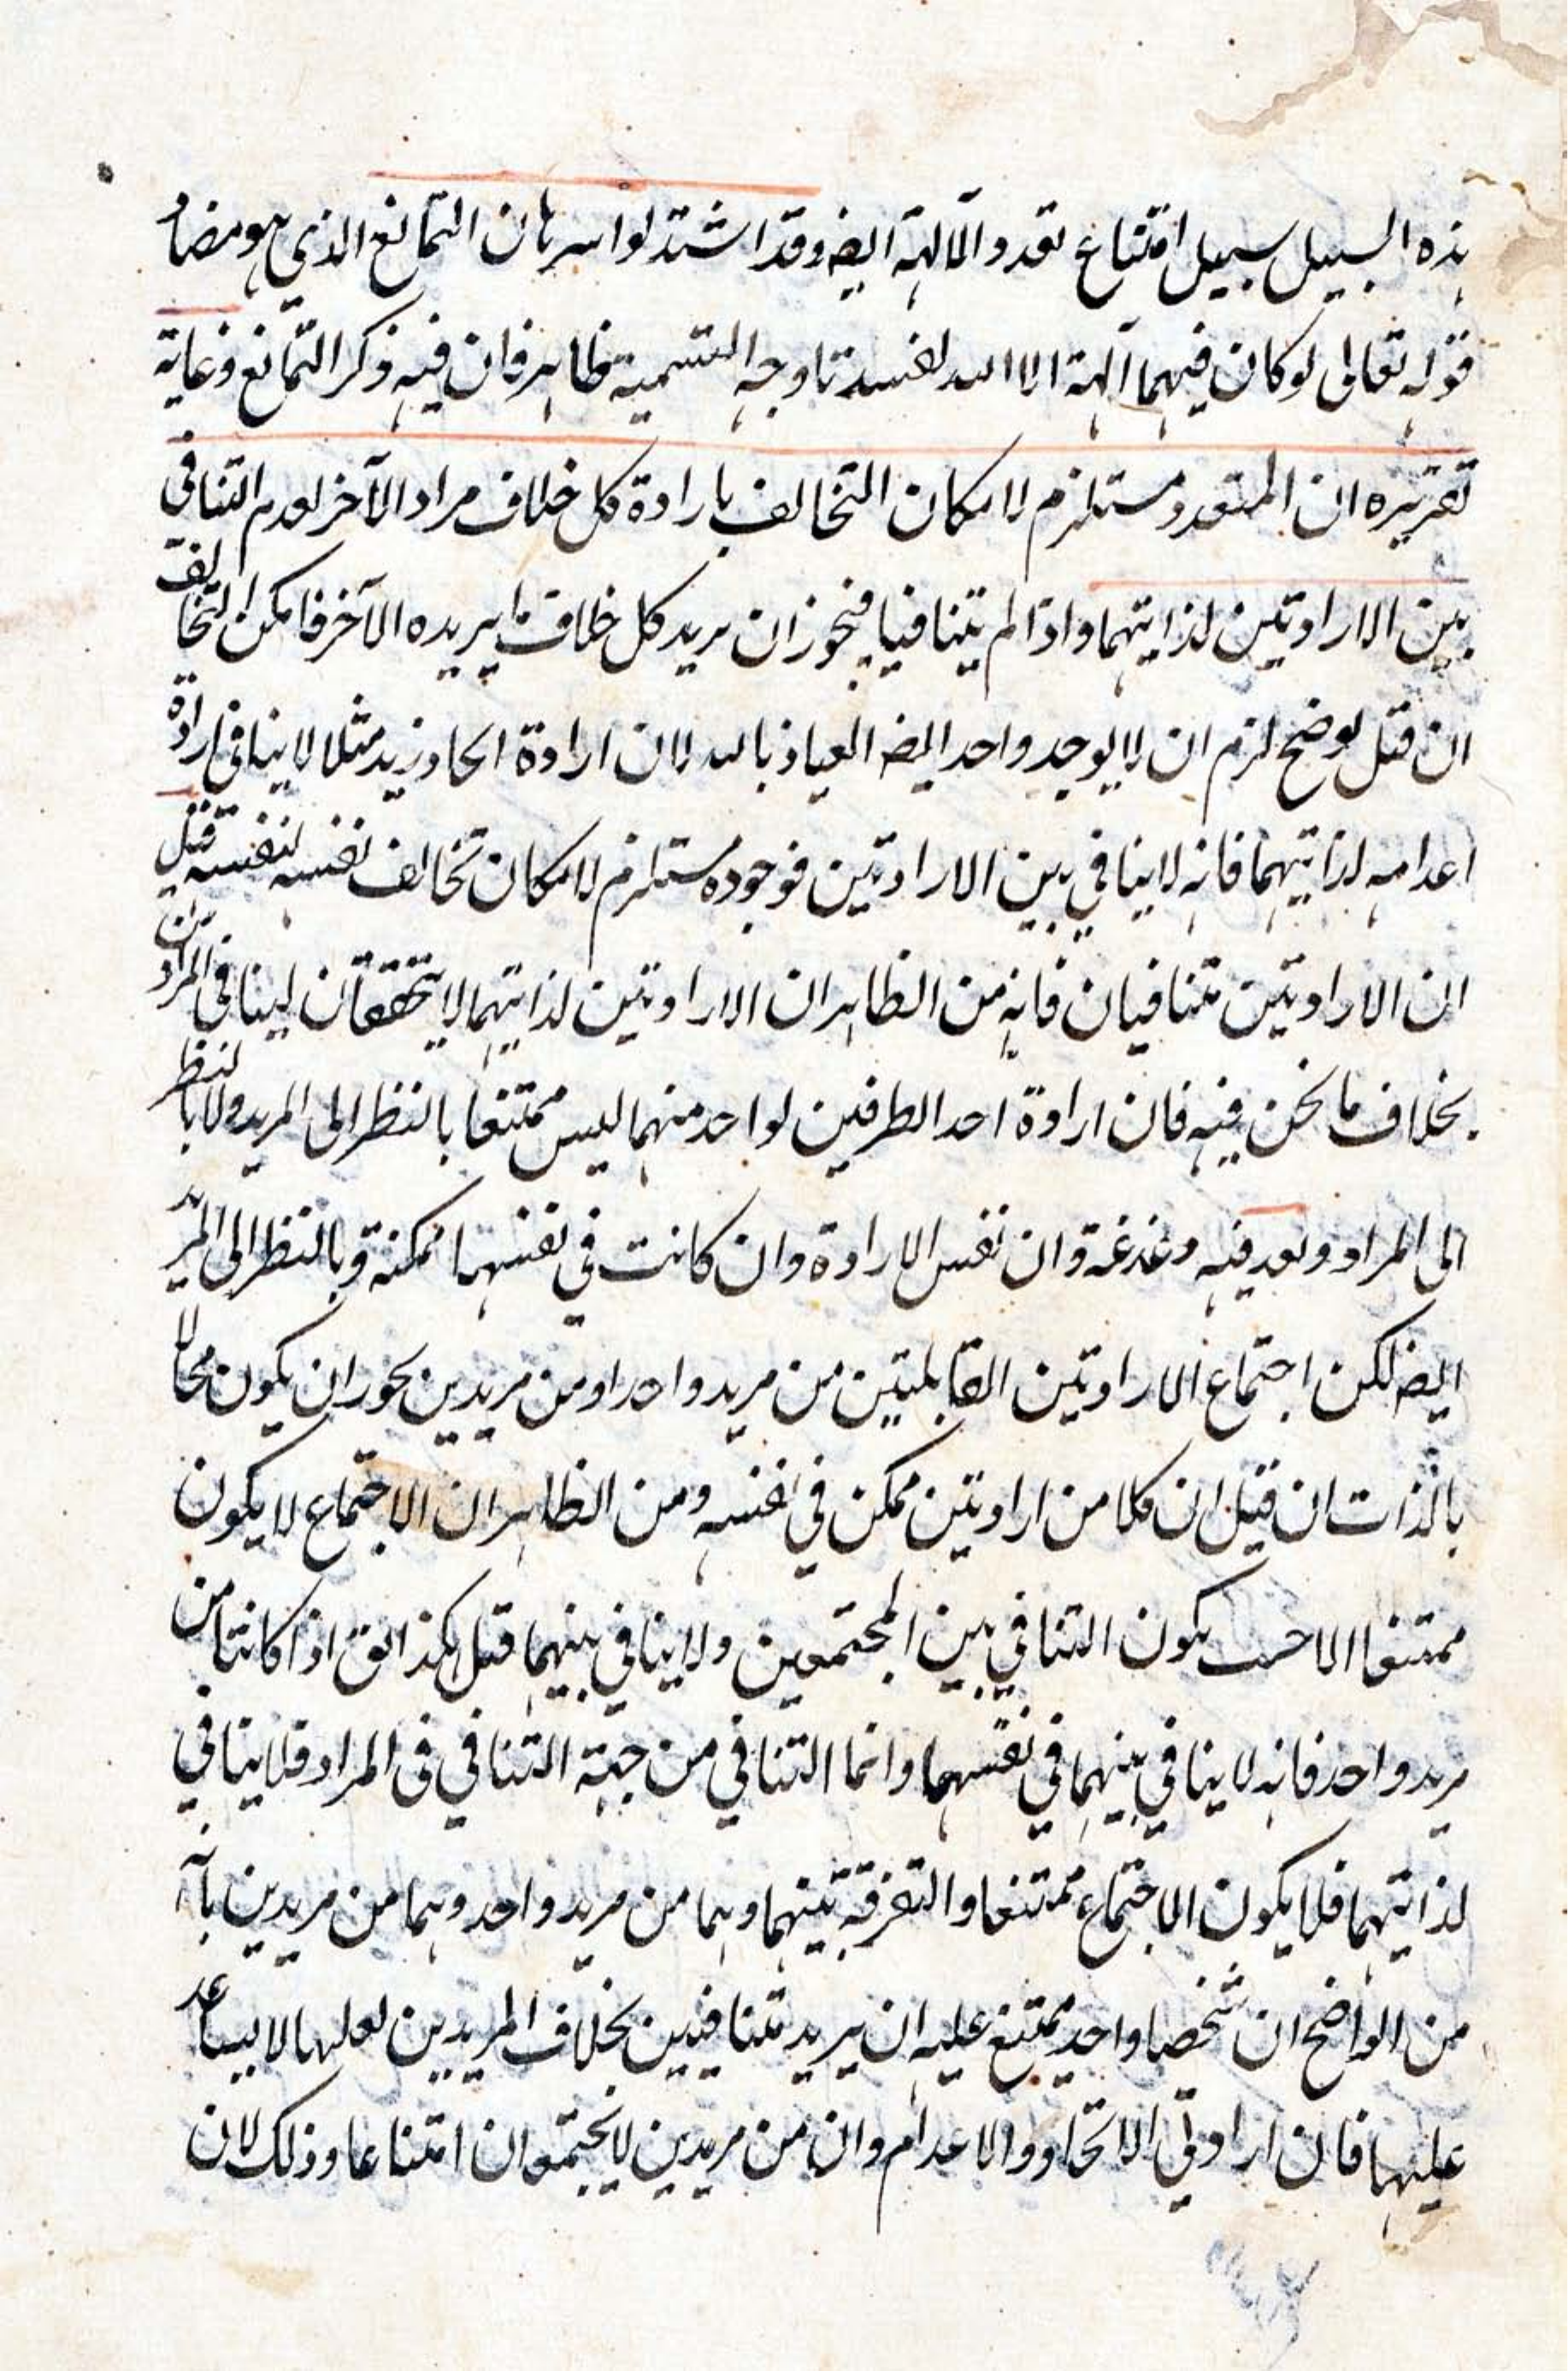 هذه السبيل سبيل امتناع تعدد الآلهة ايضه وقد اشتدلوا ببرهان التمانع الذي هو مضاد
قوله تعالى لو كان فيهما آلهة الا الله لفسدتا وجه التسمية ظاهر فان فيه ذكر التمانع وغاية
تقريره ان المتعدد مستلزم لامكان التخالف بارادة كل خلاف مراد الآخر لعدم التنافى
بين الارادتين لذاتيهما واذا لم يتنافيا فيجوز ان يريد كل خلاف ما يريده الآخر فامكن التخالف
ان قيل لو صح لزم ان لا يوجد واحد ايضه العياذ بالله لان ارادة ايجاد زيد مثلا لا ينافى ارادة
اعدامه لذاتيهما فانه لا ينافي بين الارادتين فوجوده مستلزم لامكان تخالف نفسه لنفسه قيل
ان الارادتين تتنافيان فانه من الظاهر ان الارادتين لذاتيهما لا يتحققان لينافى المرادين
بخلاف ما نحن فيه فان ارادة احد الطرفين لواحد منهما ليس ممتنعا بالنظر الى المريد ولا بالنظر
الى المراد وبعد فيه دغدغة وان نفس الارادة وان كانت في نفسها ممكنة وبالنظر الى المريد
ايضه لكن اجتماع الارادتين القابلتين من مريد واحد او من مريدين يجوز ان يكون محالا
بالذات ان قيل ان كلا من ارادتين ممكن في نفسه ومن الظاهر ان الاجتماع لا يكون
ممتنعا الا حيث يكون التنافي بين المجتمعين ولا ينافي بينهما قيل هكذا اذا كانتا من
مريد واحد فانه لا ينافي بينهما في نفسهما وانما التنافي من جهة التنافي فى المراد فلا ينافي
لذاتيهما فلا يكون الاجتماع ممتنعا والتفرقة بينهما وهما من مريد واحد وهما من مريدين بانه
من الواضح ان شخصا واحد يمتنع عليه ان يريد متنافيين بخلاف المريدين لعلها لا يساعد
عليها فان ارادتي الايجاد والاعدام وان من مريدين لا يجتمعان امتناعا وذلك لان